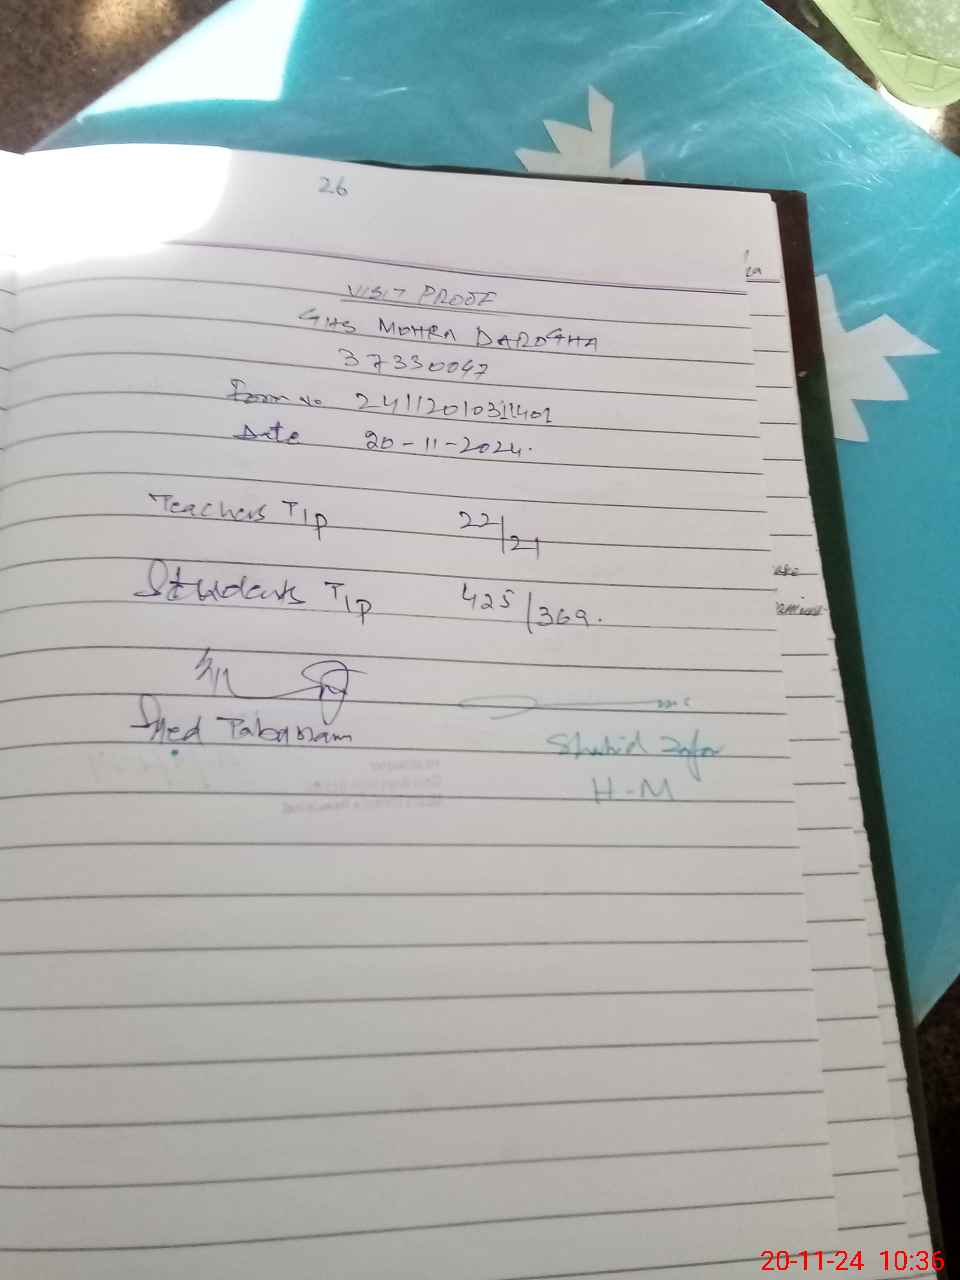 26
VISIT PROOF
GHS MOHRA DAROGHA
37330047
Form No 24112010311401
Date 20-11-2024.
Teachers T/P 22/21
Students T/P 425/369.
Syed Tabanam
Shahid Zafar
H-M
20-11-24 10:36